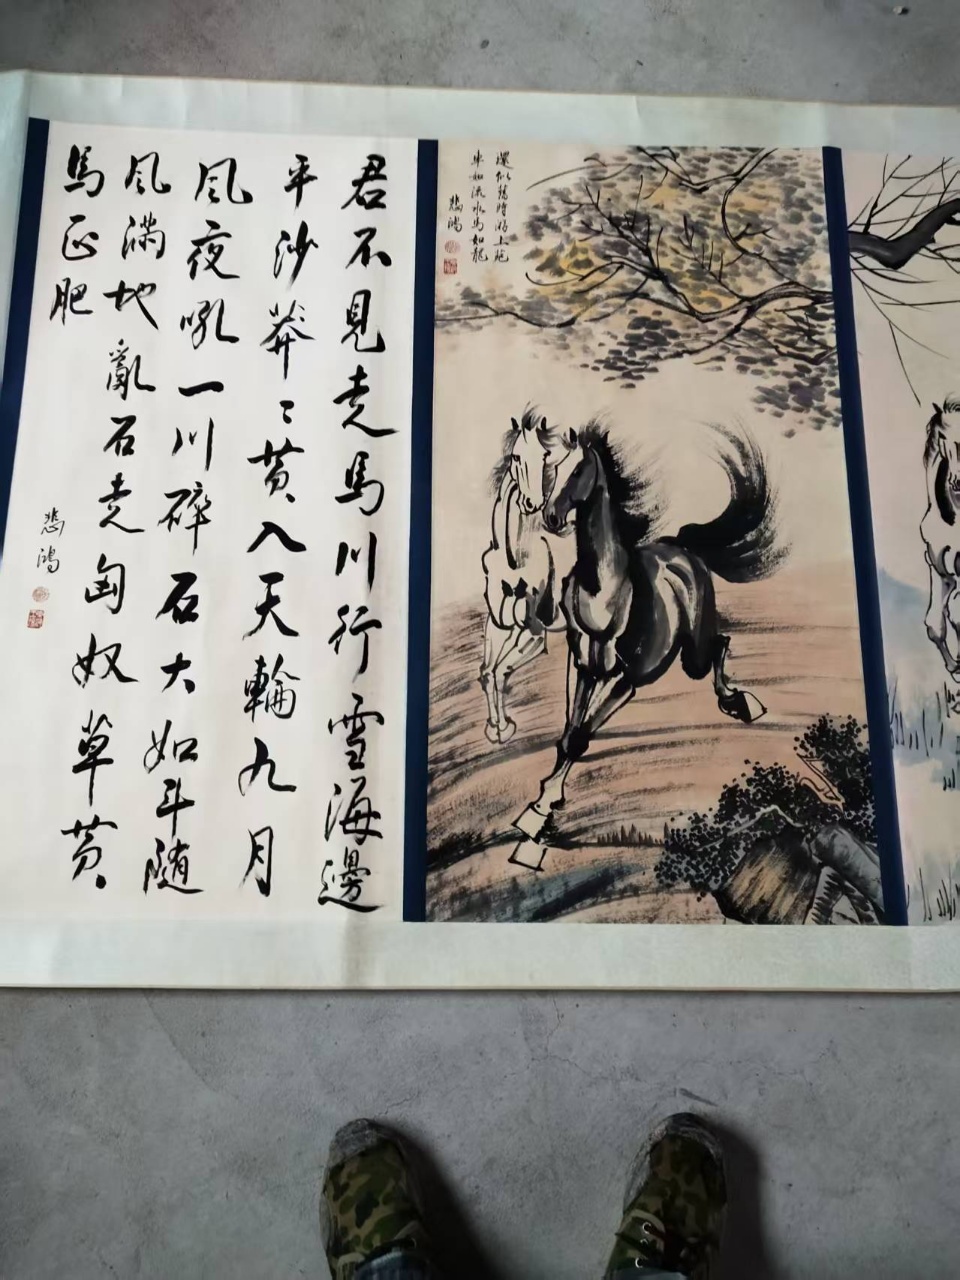 君不見走馬川行雪海邊
平沙莽〻黄入天輪九月
風夜吼一川碎石大如斗随
風满地亂石走匈奴草黄
馬正肥
悲鴻
還似舊時游上苑
車如流水馬如龍
悲鴻